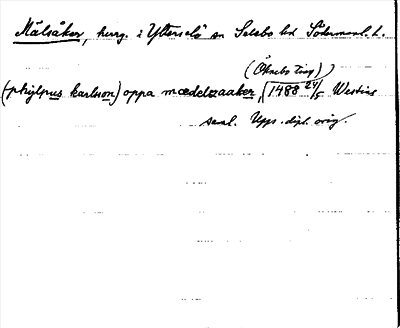 Mälsåker, herrg. i Ytterselö sn Selebo hd Södermanl. l.
(Öknebo ting)
(phylpus karlson) oppa mædelzaaker, 1488 24/5 Westins
saml. Upps. dipl. orig.